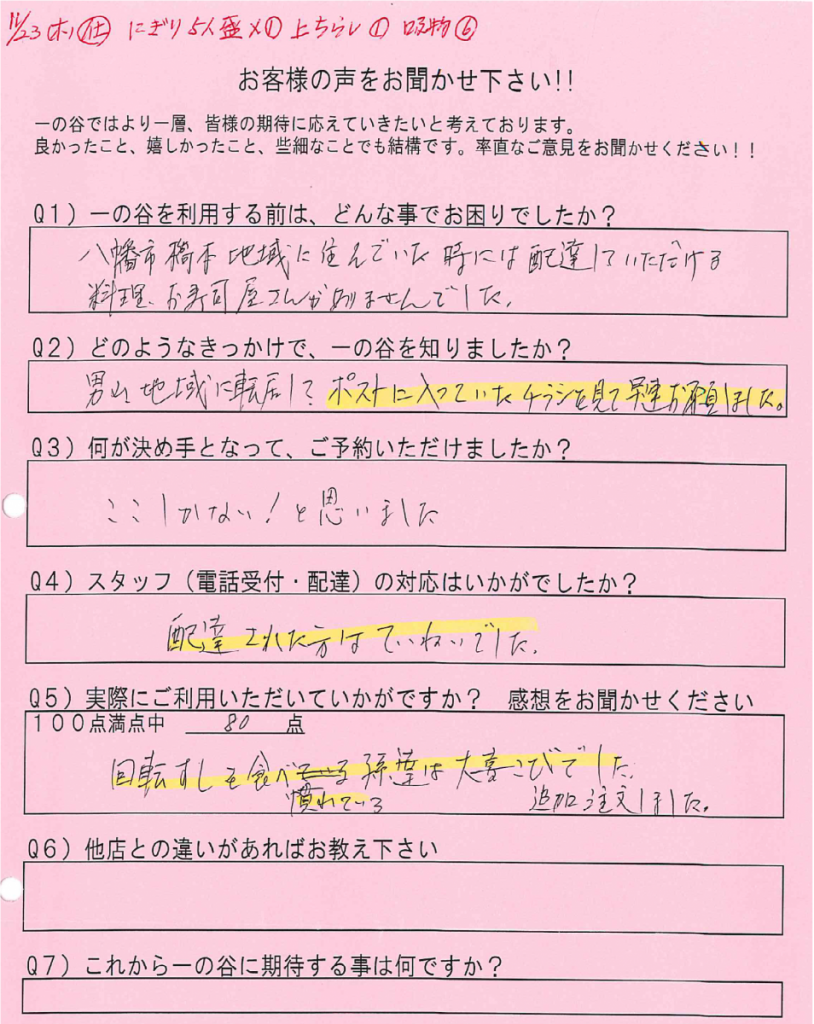 11/23(木) ㊓ にぎり5人盛×① 上ちらし① 吸物⑥
お客様の声をお聞かせ下さい!!
一の谷ではより一層、皆様の期待に応えていきたいと考えております。
良かったこと、嬉しかったこと、些細なことでも結構です。率直なご意見をお聞かせください!!
Q1)一の谷を利用する前は、どんな事でお困りでしたか?
八幡市橋本地域に住んでいた時には配達していただける
料理、お寿司屋さんがありませんでした。
Q2)どのようなきっかけで、一の谷を知りましたか?
男山地域に転居して ポストに入っていたチラシを見て早速お願いしました。
Q3)何が決め手となって、ご予約いただけましたか?
ここしかない!と思いました
Q4)スタッフ(電話受付・配達)の対応はいかがでしたか?
配達された方はていねいでした。
Q5)実際にご利用いただいていかがですか? 感想をお聞かせください
100点満点中 80 点
回転すしも食べ慣れている孫達は大喜こびでした。
追加注文しました。
Q6)他店との違いがあればお教え下さい
Q7)これから一の谷に期待する事は何ですか?